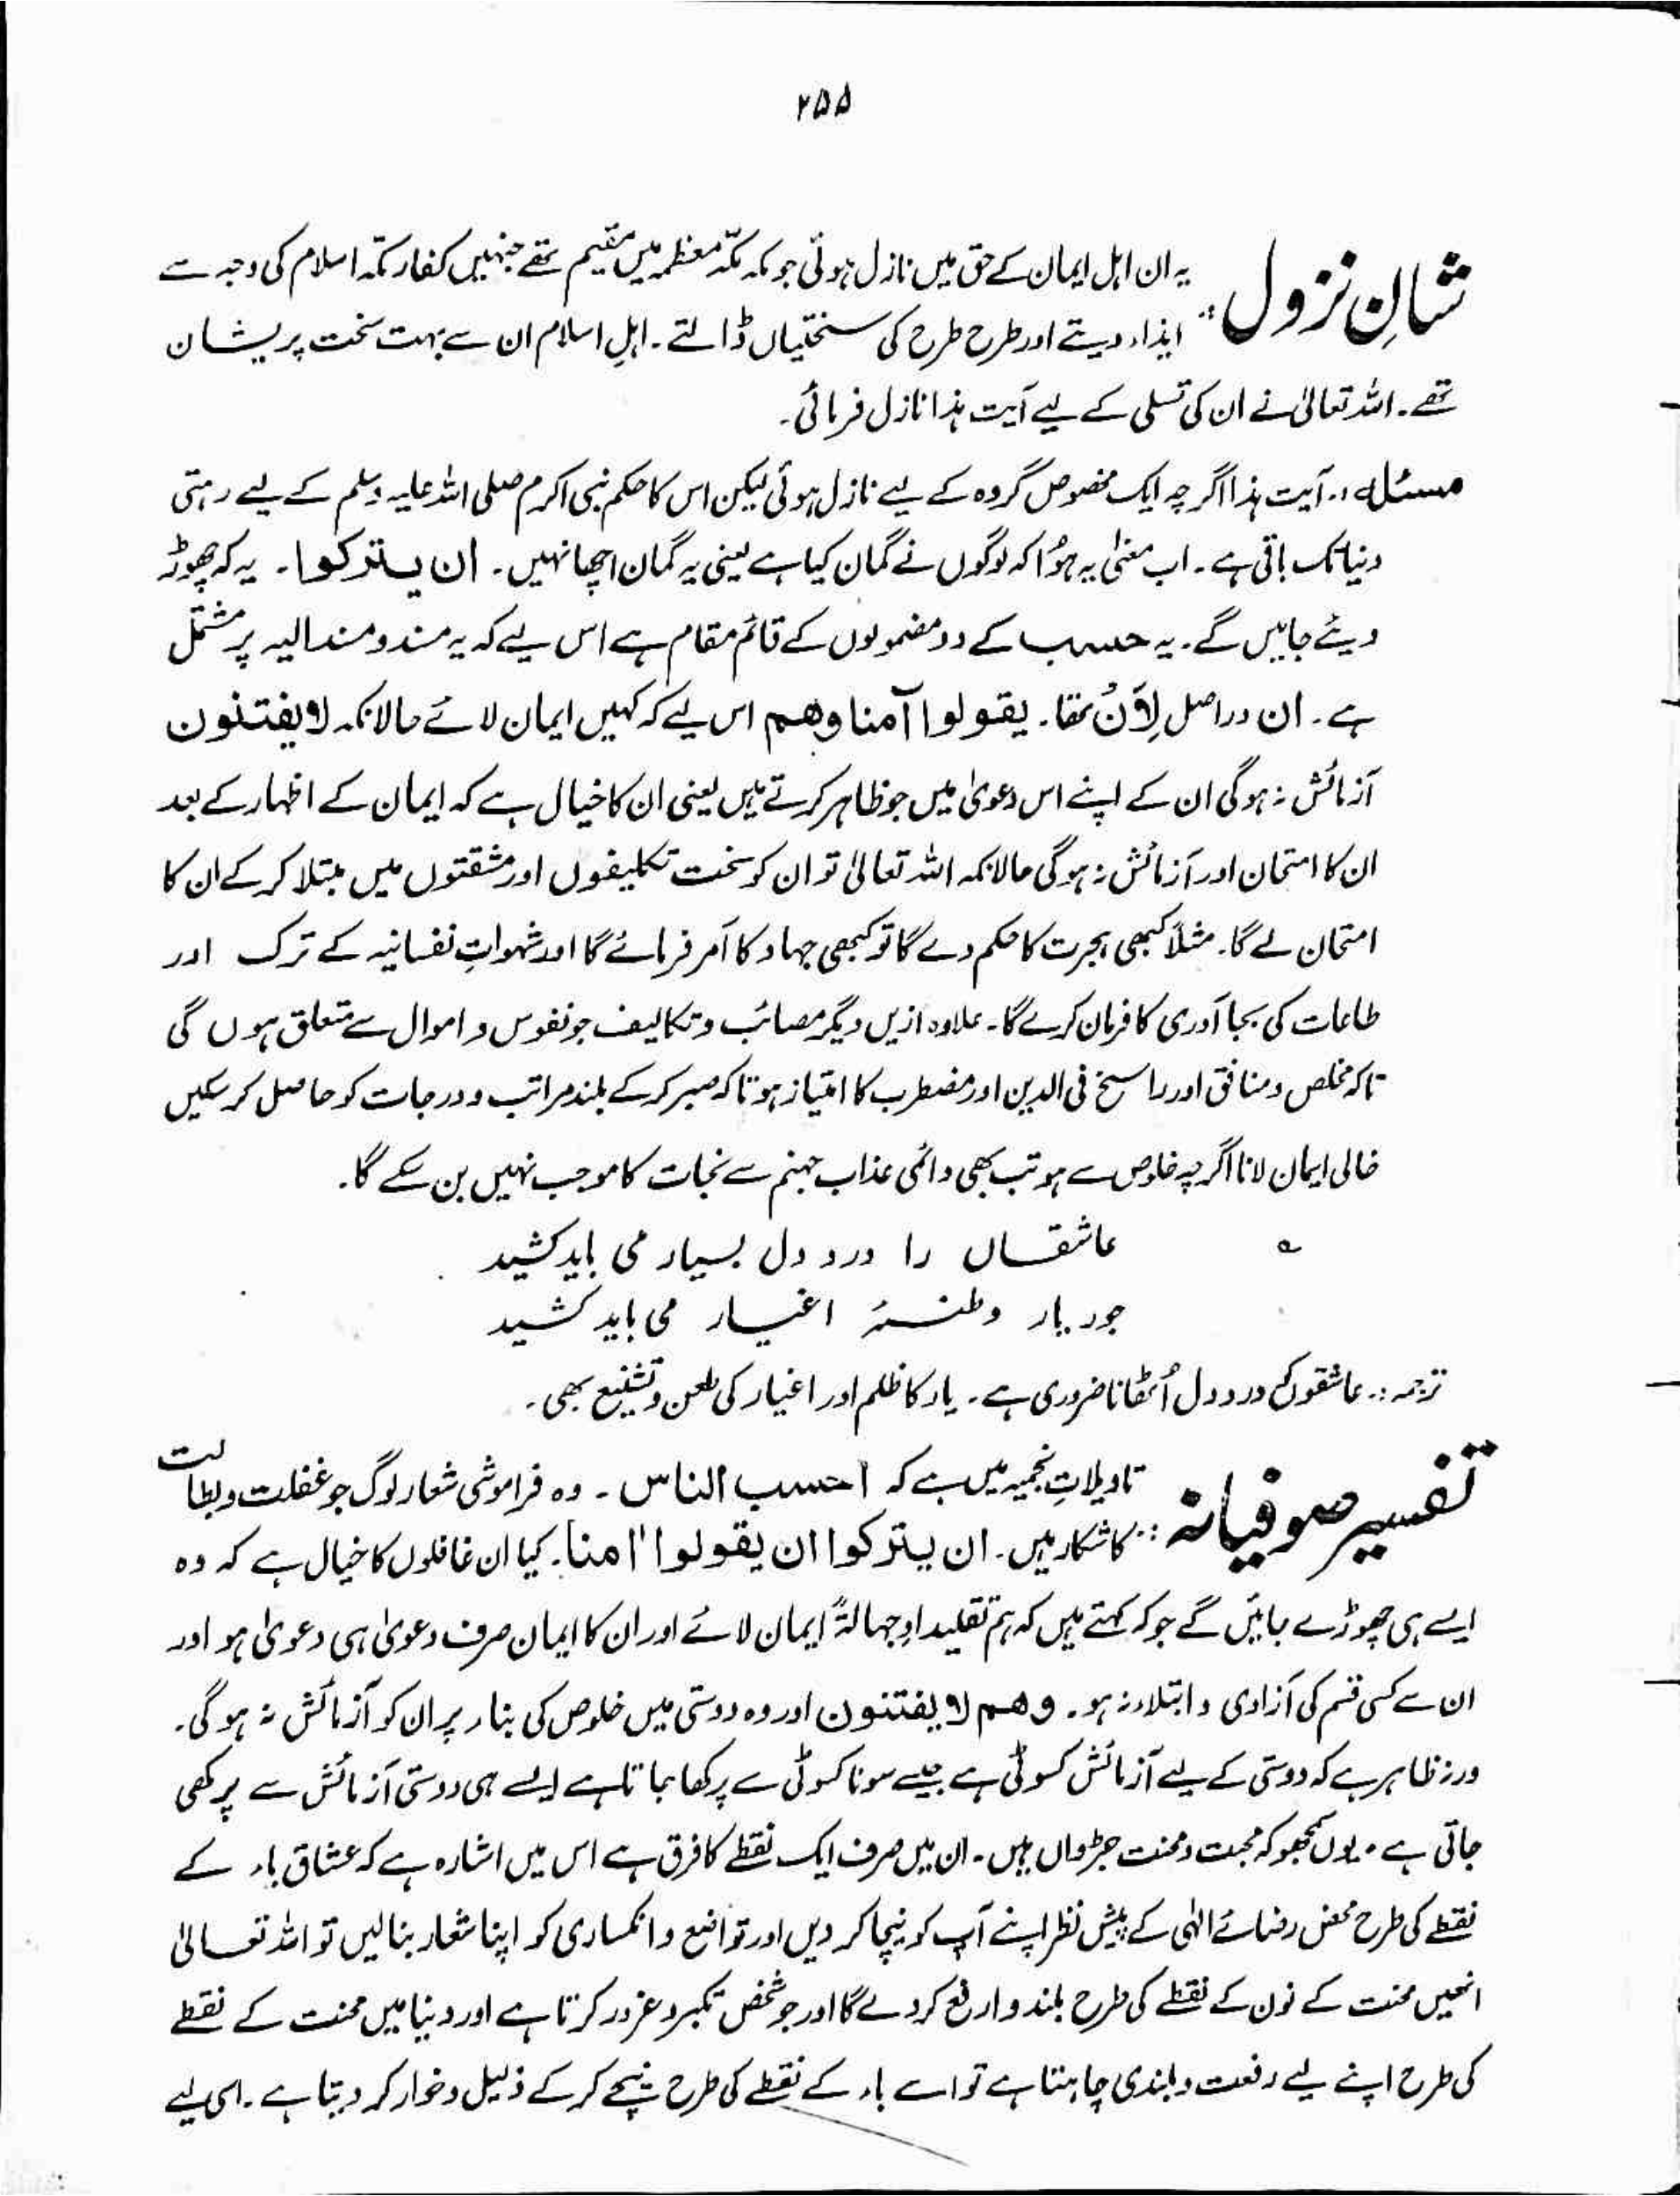 ۲۵۵
شانِ نزول :: یہ ان اہل ایمان کے حق میں نازل ہوئی جو کہ مکّہ معظمہ میں مقیم تھے جنہیں کفار مکّہ اسلام کی وجہ سے
ایذاء دیتے اور طرح طرح کی سختیاں ڈالتے ۔ اہلِ اسلام ان سے بہت سخت پریشان
تھے ۔ اللہ تعالیٰ نے ان کی تسلی کے لیے آیت ہذا نازل فرمائی ۔
مسئلہ :۔ آیت ہذا اگرچہ ایک مخصوص گروہ کے لیے نازل ہوئی لیکن اس کا حکم نبی اکرم صلی اللہ علیہ وسلم کے لیے رہتی
دنیا تک باقی ہے ۔ اب معنیٰ یہ ہُوا کہ لوگوں نے گمان کیا ہے یعنی یہ گمان اچھا نہیں ۔ ان یترکوا ۔ یہ کہ چھوڑ
دیئے جائیں گے ۔ یہ حسب کے دو مفعولوں کے قائم مقام ہے اس لیے کہ یہ مسند و مسند الیہ پر مشتمل
ہے ۔ ان دراصل لِاَنْ تھا ۔ یقولوا آمنا وھم اس لیے کہ کہیں ایمان لائے حالانکہ لا یفتنون
آزمائش نہ ہوگی ان کے اپنے اس دعویٰ میں جو ظاہر کرتے ہیں یعنی ان کا خیال ہے کہ ایمان کے اظہار کے بعد
ان کا امتحان اور آزمائش نہ ہوگی حالانکہ اللہ تعالیٰ تو ان کو سخت تکلیفوں اور مشقتوں میں مبتلا کر کے ان کا
امتحان لے گا ۔ مثلاً کبھی ہجرت کا حکم دے گا تو کبھی جہاد کا اَمر فرمائے گا اور شہواتِ نفسانیہ کے ترک اور
طاعات کی بجا آوری کا فرمان کرے گا ۔ علاوہ ازیں دیگر مصائب و تکالیف جو نفوس و اموال سے متعلق ہوں گی
تاکہ مخلص و منافق اور راسخ فی الدین اور مضطرب کا امتیاز ہو تاکہ صبر کر کے بلند مراتب و درجات کو حاصل کر سکیں
خالی ایمان لانا اگرچہ خلوص سے ہو تب بھی دائمی عذاب جہنم سے نجات کا موجب نہیں بن سکے گا ۔
؎ عاشقاں را درد دل بسیار می باید کشید
جور یار و طعنۂ اغیار می باید کشید
ترجمہ :۔ عاشقوں کے درد دل اُٹھانا ضروری ہے ۔ یار کا ظلم اور اغیار کی طعن و تشنیع بھی ۔
تفسیر صوفیانہ :: تاویلاتِ نجمیہ میں ہے کہ احسب الناس ۔ وہ فراموشی شعار لوگ جو غفلت و بطالت
کا شکار ہیں ۔ ان یترکوا ان یقولوا اٰمنا ۔ کیا ان غافلوں کا خیال ہے کہ وہ
ایسے ہی چھوڑے جائیں گے جو کہ کہتے ہیں کہ ہم تقلیداً و جہالۃً ایمان لائے اور ان کا ایمان صرف دعویٰ ہی دعویٰ ہو اور
ان سے کسی قسم کی آزادی و ابتلاء نہ ہو ۔ وھم لا یفتنون اور وہ دوستی میں خلوص کی بناء پر ان کو آزمائش نہ ہوگی ۔
ورنہ ظاہر ہے کہ دوستی کے لیے آزمائش کسوٹی ہے جیسے سونا کسوٹی سے پرکھا جاتا ہے ایسے ہی دوستی آزمائش سے پرکھی
جاتی ہے ۔ یوں سمجھو کہ محبت و محنت جڑواں ہیں ۔ ان میں صرف ایک نقطے کا فرق ہے اس میں اشارہ ہے کہ عشاق باء کے
نقطے کی طرح محض رضائے الٰہی کے پیش نظر اپنے آپ کو نیچا کر دیں اور تواضع و انکساری کو اپنا شعار بنا لیں تو اللہ تعالیٰ
انھیں محنت کے نون کے نقطے کی طرح بلند و ارفع کر دے گا اور جو شخص تکبر و غرور کرتا ہے اور دنیا میں محنت کے نقطے
کی طرح اپنے لیے رفعت و بلندی چاہتا ہے تو اسے باء کے نقطے کی طرح نیچے کر کے ذلیل و خوار کر دیتا ہے ۔ اسی لیے